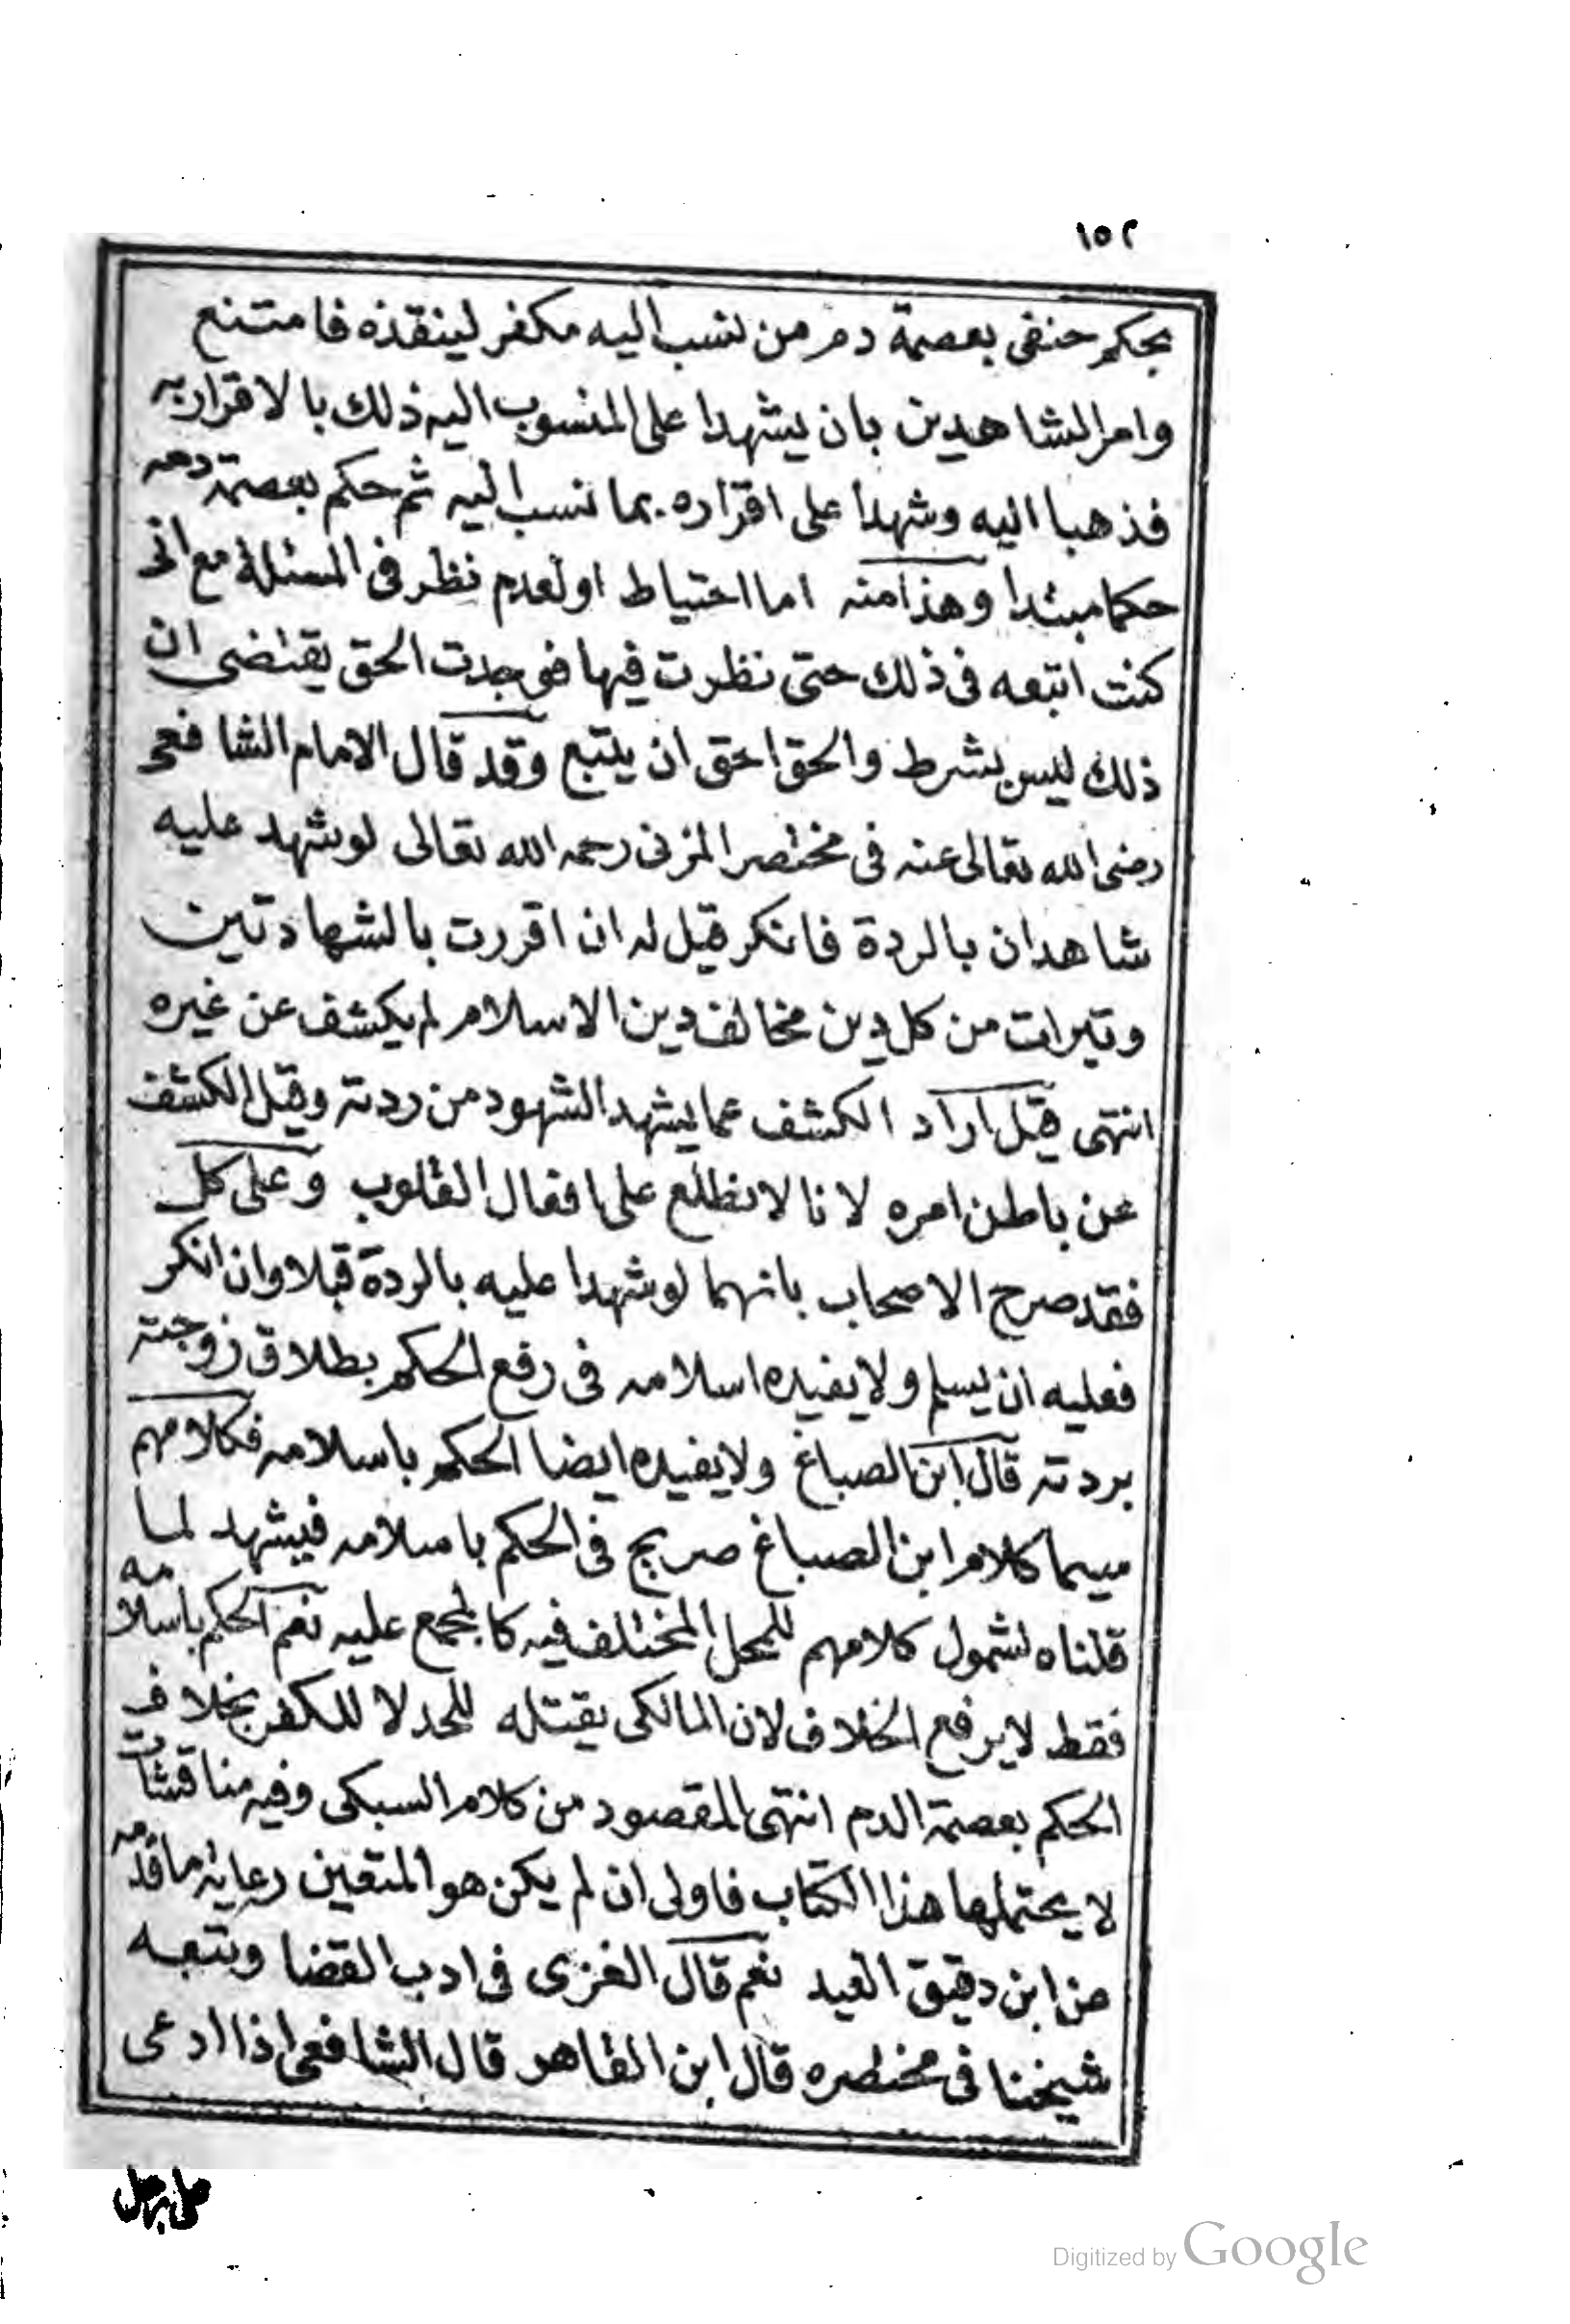 ١٥٢
بحكم حنفى بعصمة دم من نسب اليه مكفر لينقذه فامتنع
وامر الشاهدين بان يشهدا على المنسوب اليه ذلك بالاقرار به
فذهبا اليه وشهدا على اقراره بما نسب اليه ثم حكم بعصمة دمه
حكما مبتدا وهذا منه اما احتياط او لعدم نظر فى المسئلة مع انى
كنت اتبعه فى ذلك حتى نظرت فيها فوجدت الحق يقتضى ان
ذلك ليس بشرط والحق احق ان يتبع وقد قال الامام الشافعى
رضى الله تعالى عنه فى مختصر المزنى رحمه الله تعالى لو شهد عليه
شاهدان بالردة فانكر قيل له ان اقررت بالشهادتين
وتبرات من كل دين مخالف دين الاسلام لم يكشف عن غيره
انتهى قيل اراد الكشف عما يشهد الشهود من ردته وقيل الكشف
عن باطن امره لانا لا نطلع على افعال القلوب وعلى كل
فقد صرح الاصحاب بانهما لو شهدا عليه بالردة قبلا وان انكر
فعليه ان يسلم ولا يفيده اسلامه فى رفع الحكم بطلاق زوجته
بردته قال ابن الصباغ ولا يفيده ايضا الحكم باسلامه فكلامهم
سيما كلام ابن الصباغ صريح فى الحكم باسلامه فيشهد لما
قلناه لشمول كلامهم للمحل المختلف فيه كالمجمع عليه نعم الحكم باسلامه
فقط لا يرفع الخلاف لان المالكى يقتله للحد لا للكفر بخلاف
الحكم بعصمة الدم انتهى المقصود من كلام السبكى وفيه مناقشات
لا يحتملها هذا الكتاب فاولى ان لم يكن هو المتعين رعاية ما قدمه
من ابن دقيق العيد نعم قال الغزى فى ادب القضا وتبعه
شيخنا فى مختصره قال ابن القاهر قال الشافعى اذا ادعى
Digitized by Google